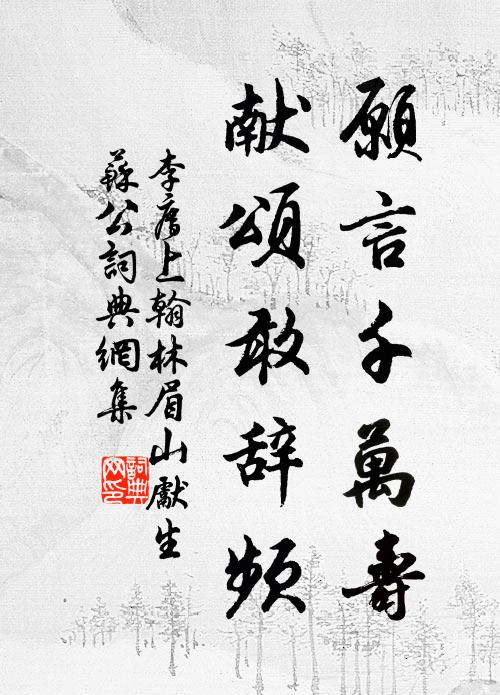 願言千萬壽
献頌敢辞頻
李廌上翰林眉山獻生
蘇公詞典網集
詞典网印